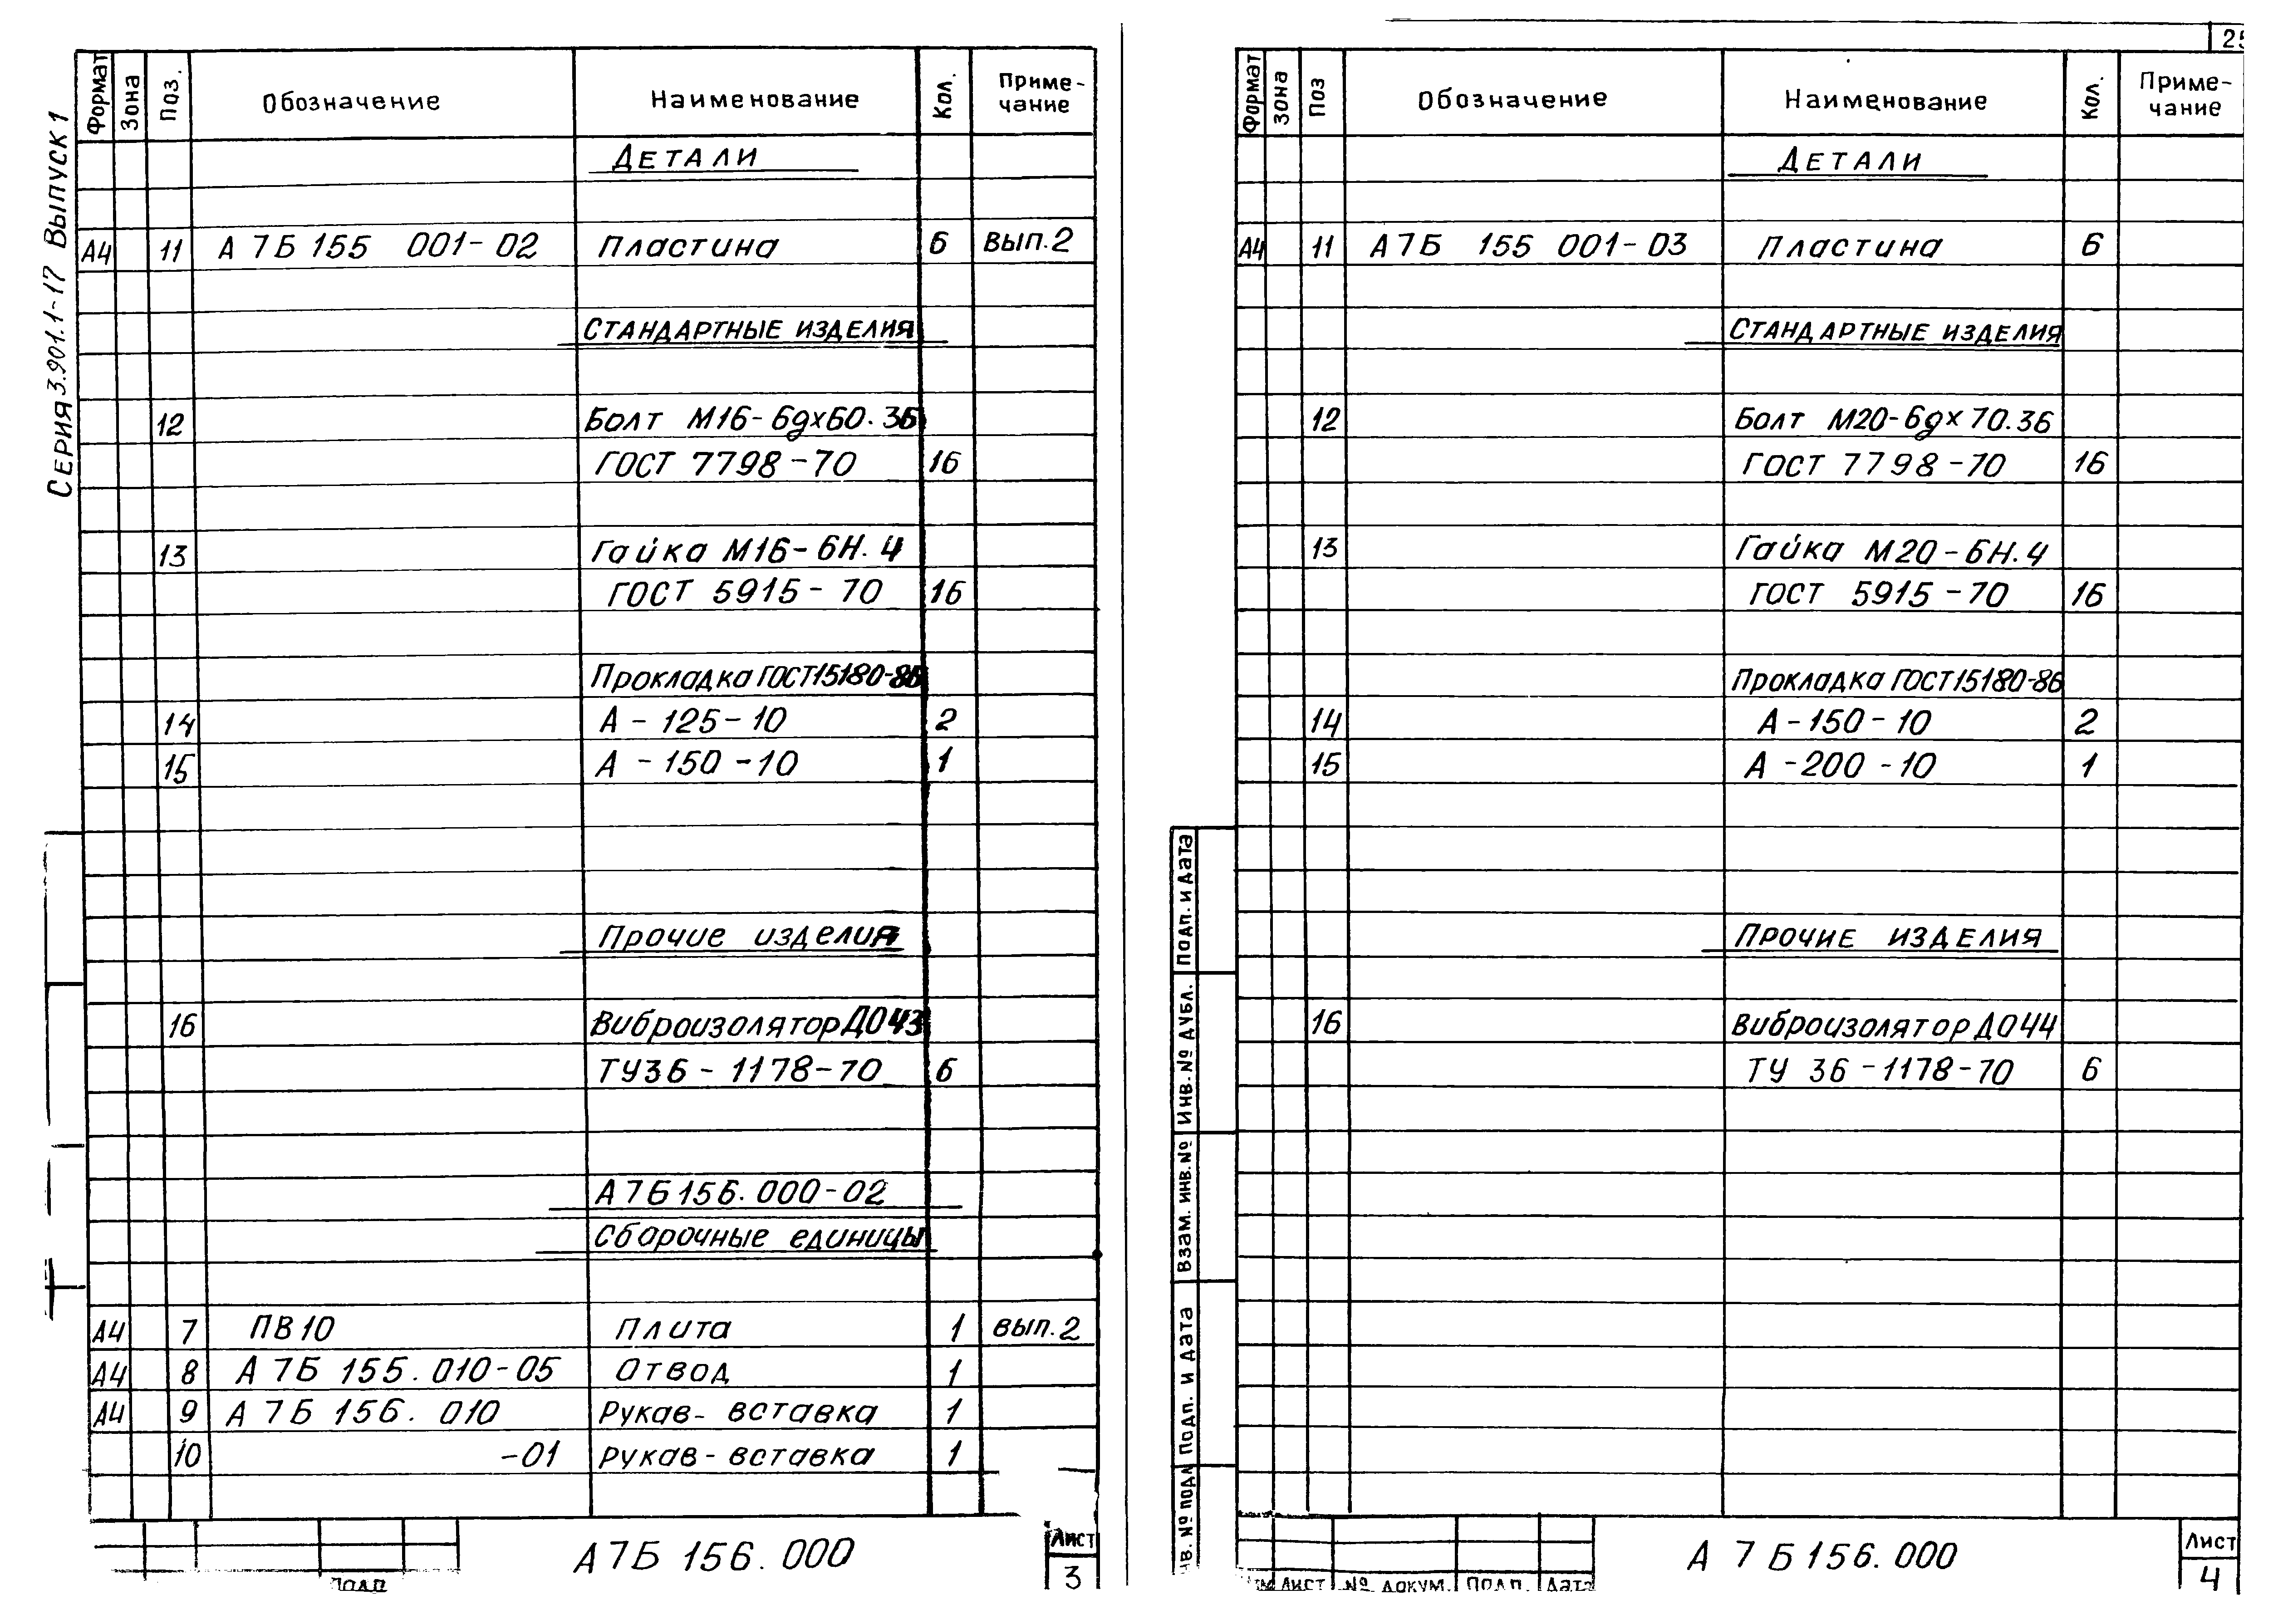 Серия 3.901.1-17 Выпуск 1
Формат Зона Поз. Обозначение Наименование Кол. Приме-
чание
Детали
А4 11 А 7Б 155 001-02 Пластина 6 вып.2
Стандартные изделия
12 Болт М16-6gх60.36
ГОСТ 7798-70 16
13 Гайка М16-6Н.4
ГОСТ 5915-70 16
Прокладка ГОСТ15180-86
14 А-125-10 2
15 А-150-10 1
Прочие изделия
16 Виброизолятор ДО43
ТУ36-1178-70 6
А7Б156.000-02
Сборочные единицы
А4 7 ПВ10 Плита 1 вып.2
А4 8 А 7Б 155.010-05 Отвод 1
А4 9 А 7Б 156.010 Рукав-вставка 1
10 -01 Рукав-вставка 1
А7Б 156.000
Лист
3
Подп
Формат Зона Поз Обозначение Наименование Кол. Приме-
чание
Детали
А4 11 А7Б 155 001-03 Пластина 6
Стандартные изделия
12 Болт М20-6gх70.36
ГОСТ 7798-70 16
13 Гайка М20-6Н.4
ГОСТ 5915-70 16
Прокладка ГОСТ15180-86
14 А-150-10 2
15 А-200-10 1
Прочие изделия
16 Виброизолятор ДО44
ТУ 36-1178-70 6
Подп. и дата
Инв.№ дубл.
Взам. инв.№
Подп. и дата
А 7Б156.000
Лист
4
Лист № докум. Подп. Дата